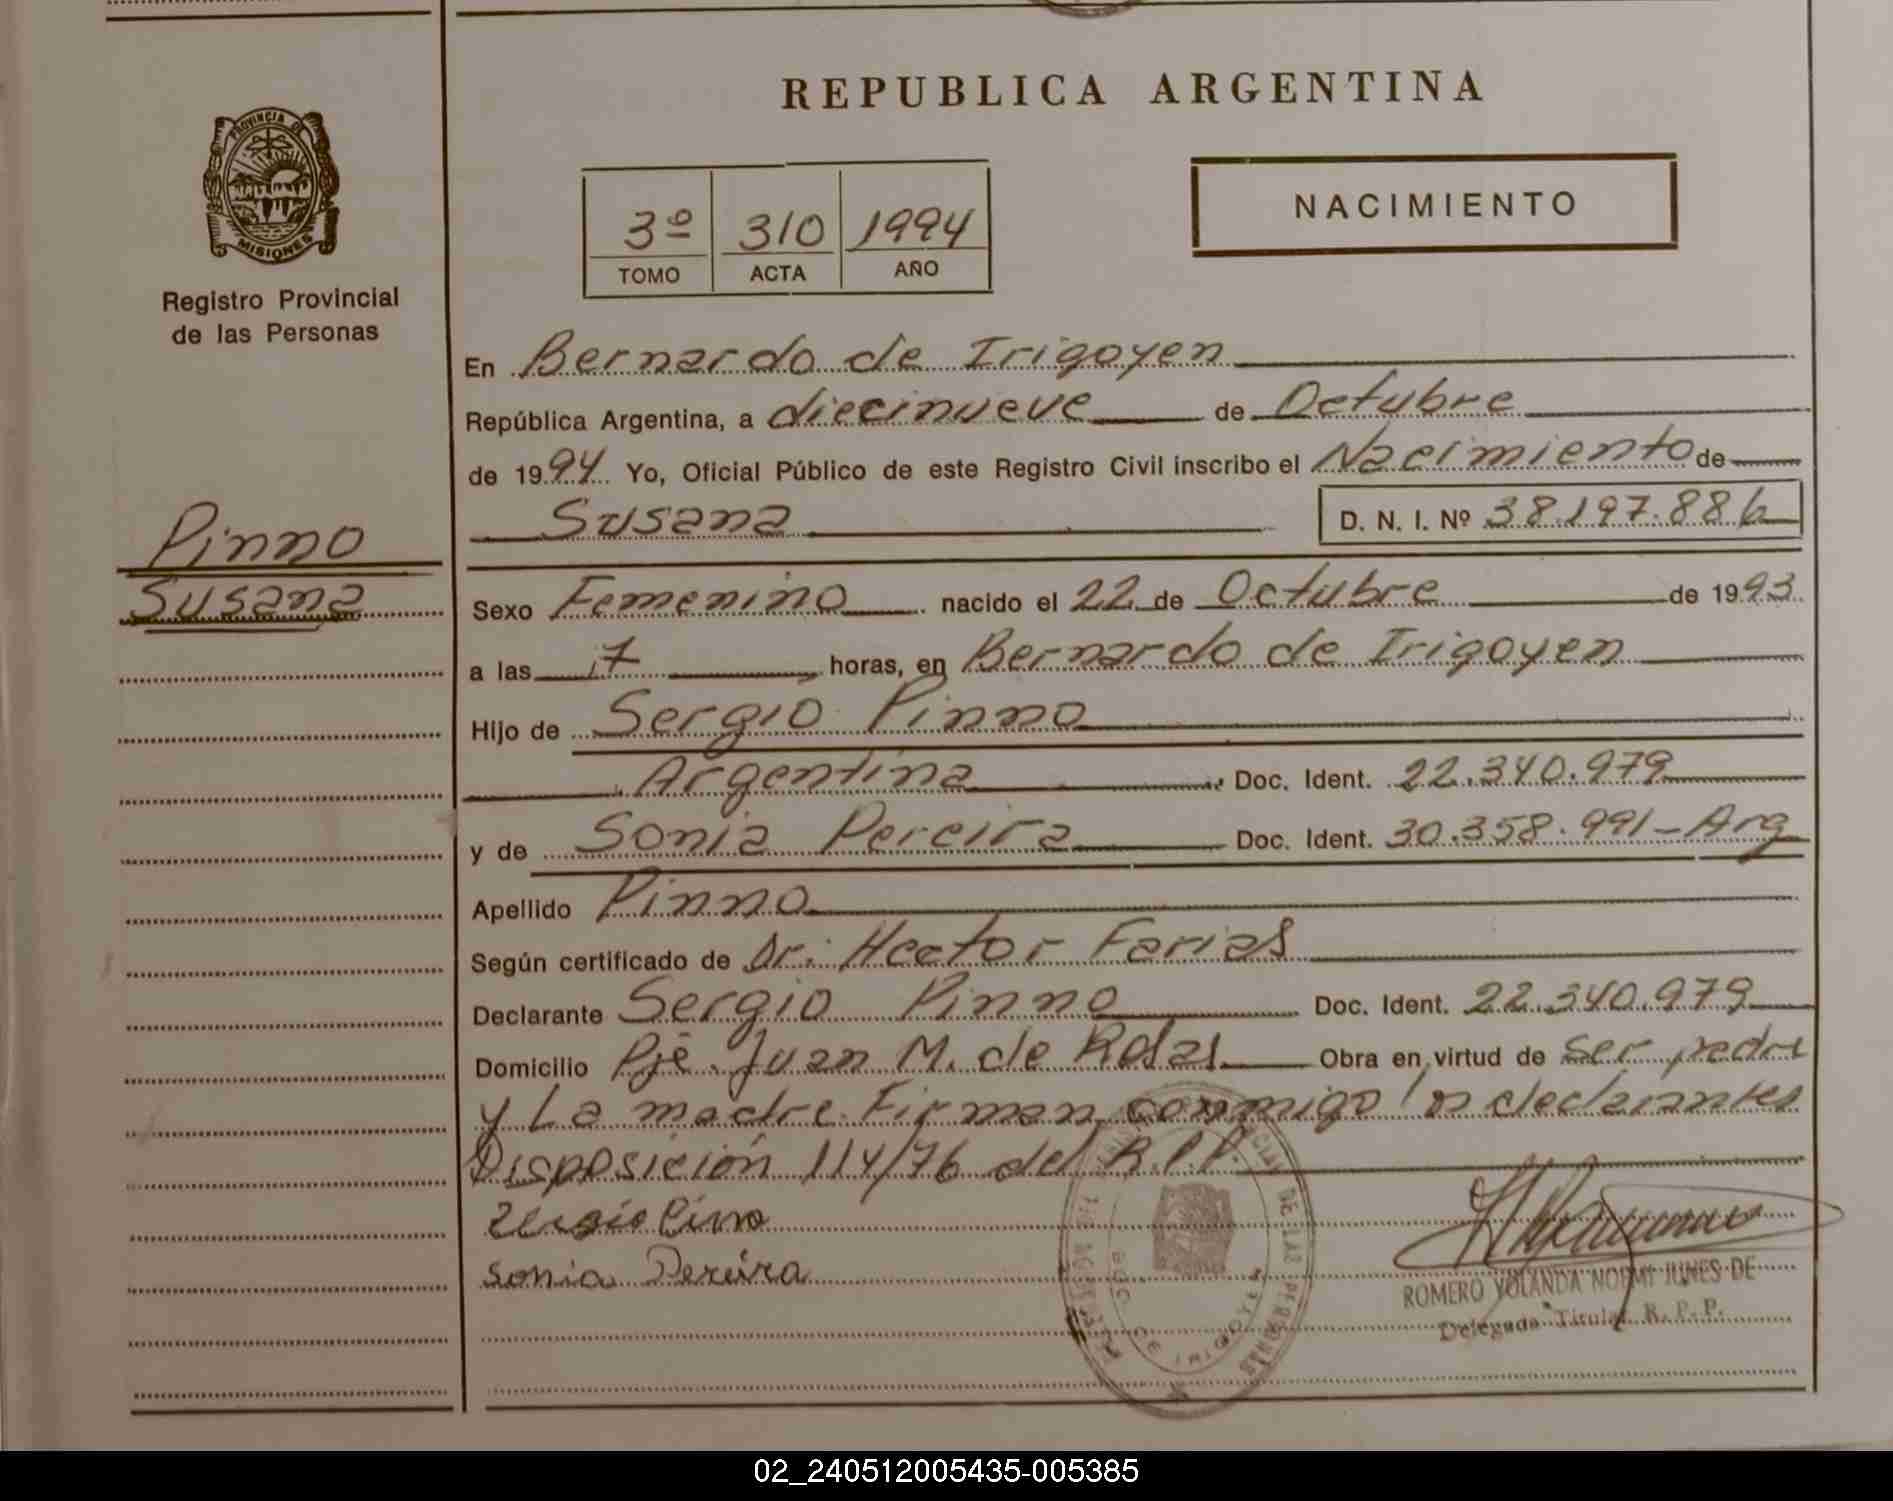 REPUBLICA ARGENTINA
PROVINCIA DE
MISIONES
Registro Provincial
de las Personas
3º 310 1994
TOMO ACTA AÑO
NACIMIENTO
En Bernardo de Irigoyen
República Argentina, a diecinueve de Octubre
de 1994 Yo, Oficial Público de este Registro Civil inscribo el Nacimiento de
Susana D. N. I. Nº 38.197.886
Pinno
Susana
Sexo Femenino nacido el 22 de Octubre de 1993
a las 17 horas, en Bernardo de Irigoyen
Hijo de Sergio Pinno
Argentina Doc. Ident. 22.340.979
y de Sonia Pereira Doc. Ident. 30.358.991-Arg
Apellido Pinno
Según certificado de Dr: Hector Farias
Declarante Sergio Pinno Doc. Ident. 22.340.979
Domicilio Pje. Juan M. de Rosas Obra en virtud de Ser padre
y La madre Firman conmigo los declarantes
Disposición 114/76 del R.P.P.
Sergio Pino
Sonia Pereira
DE LAS PERSONAS
ROMERO YOLANDA NOEMI JUNES DE
Delegada Titular R. P. P.
02_240512005435-005385